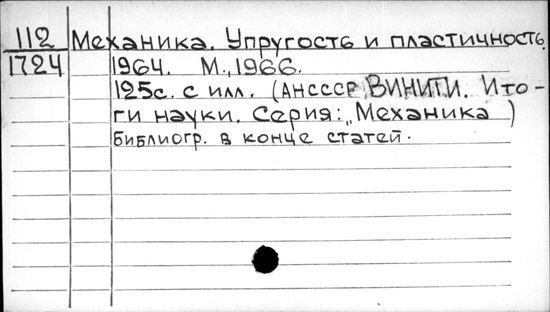 112 Механика. Упругость и пластичность
1724 1964. М., 1966.
125с. с илл. (АНСССР ВИНИТИ. Ито-
ги науки. Серия: „Механика)
Библиогр. в конце статей.